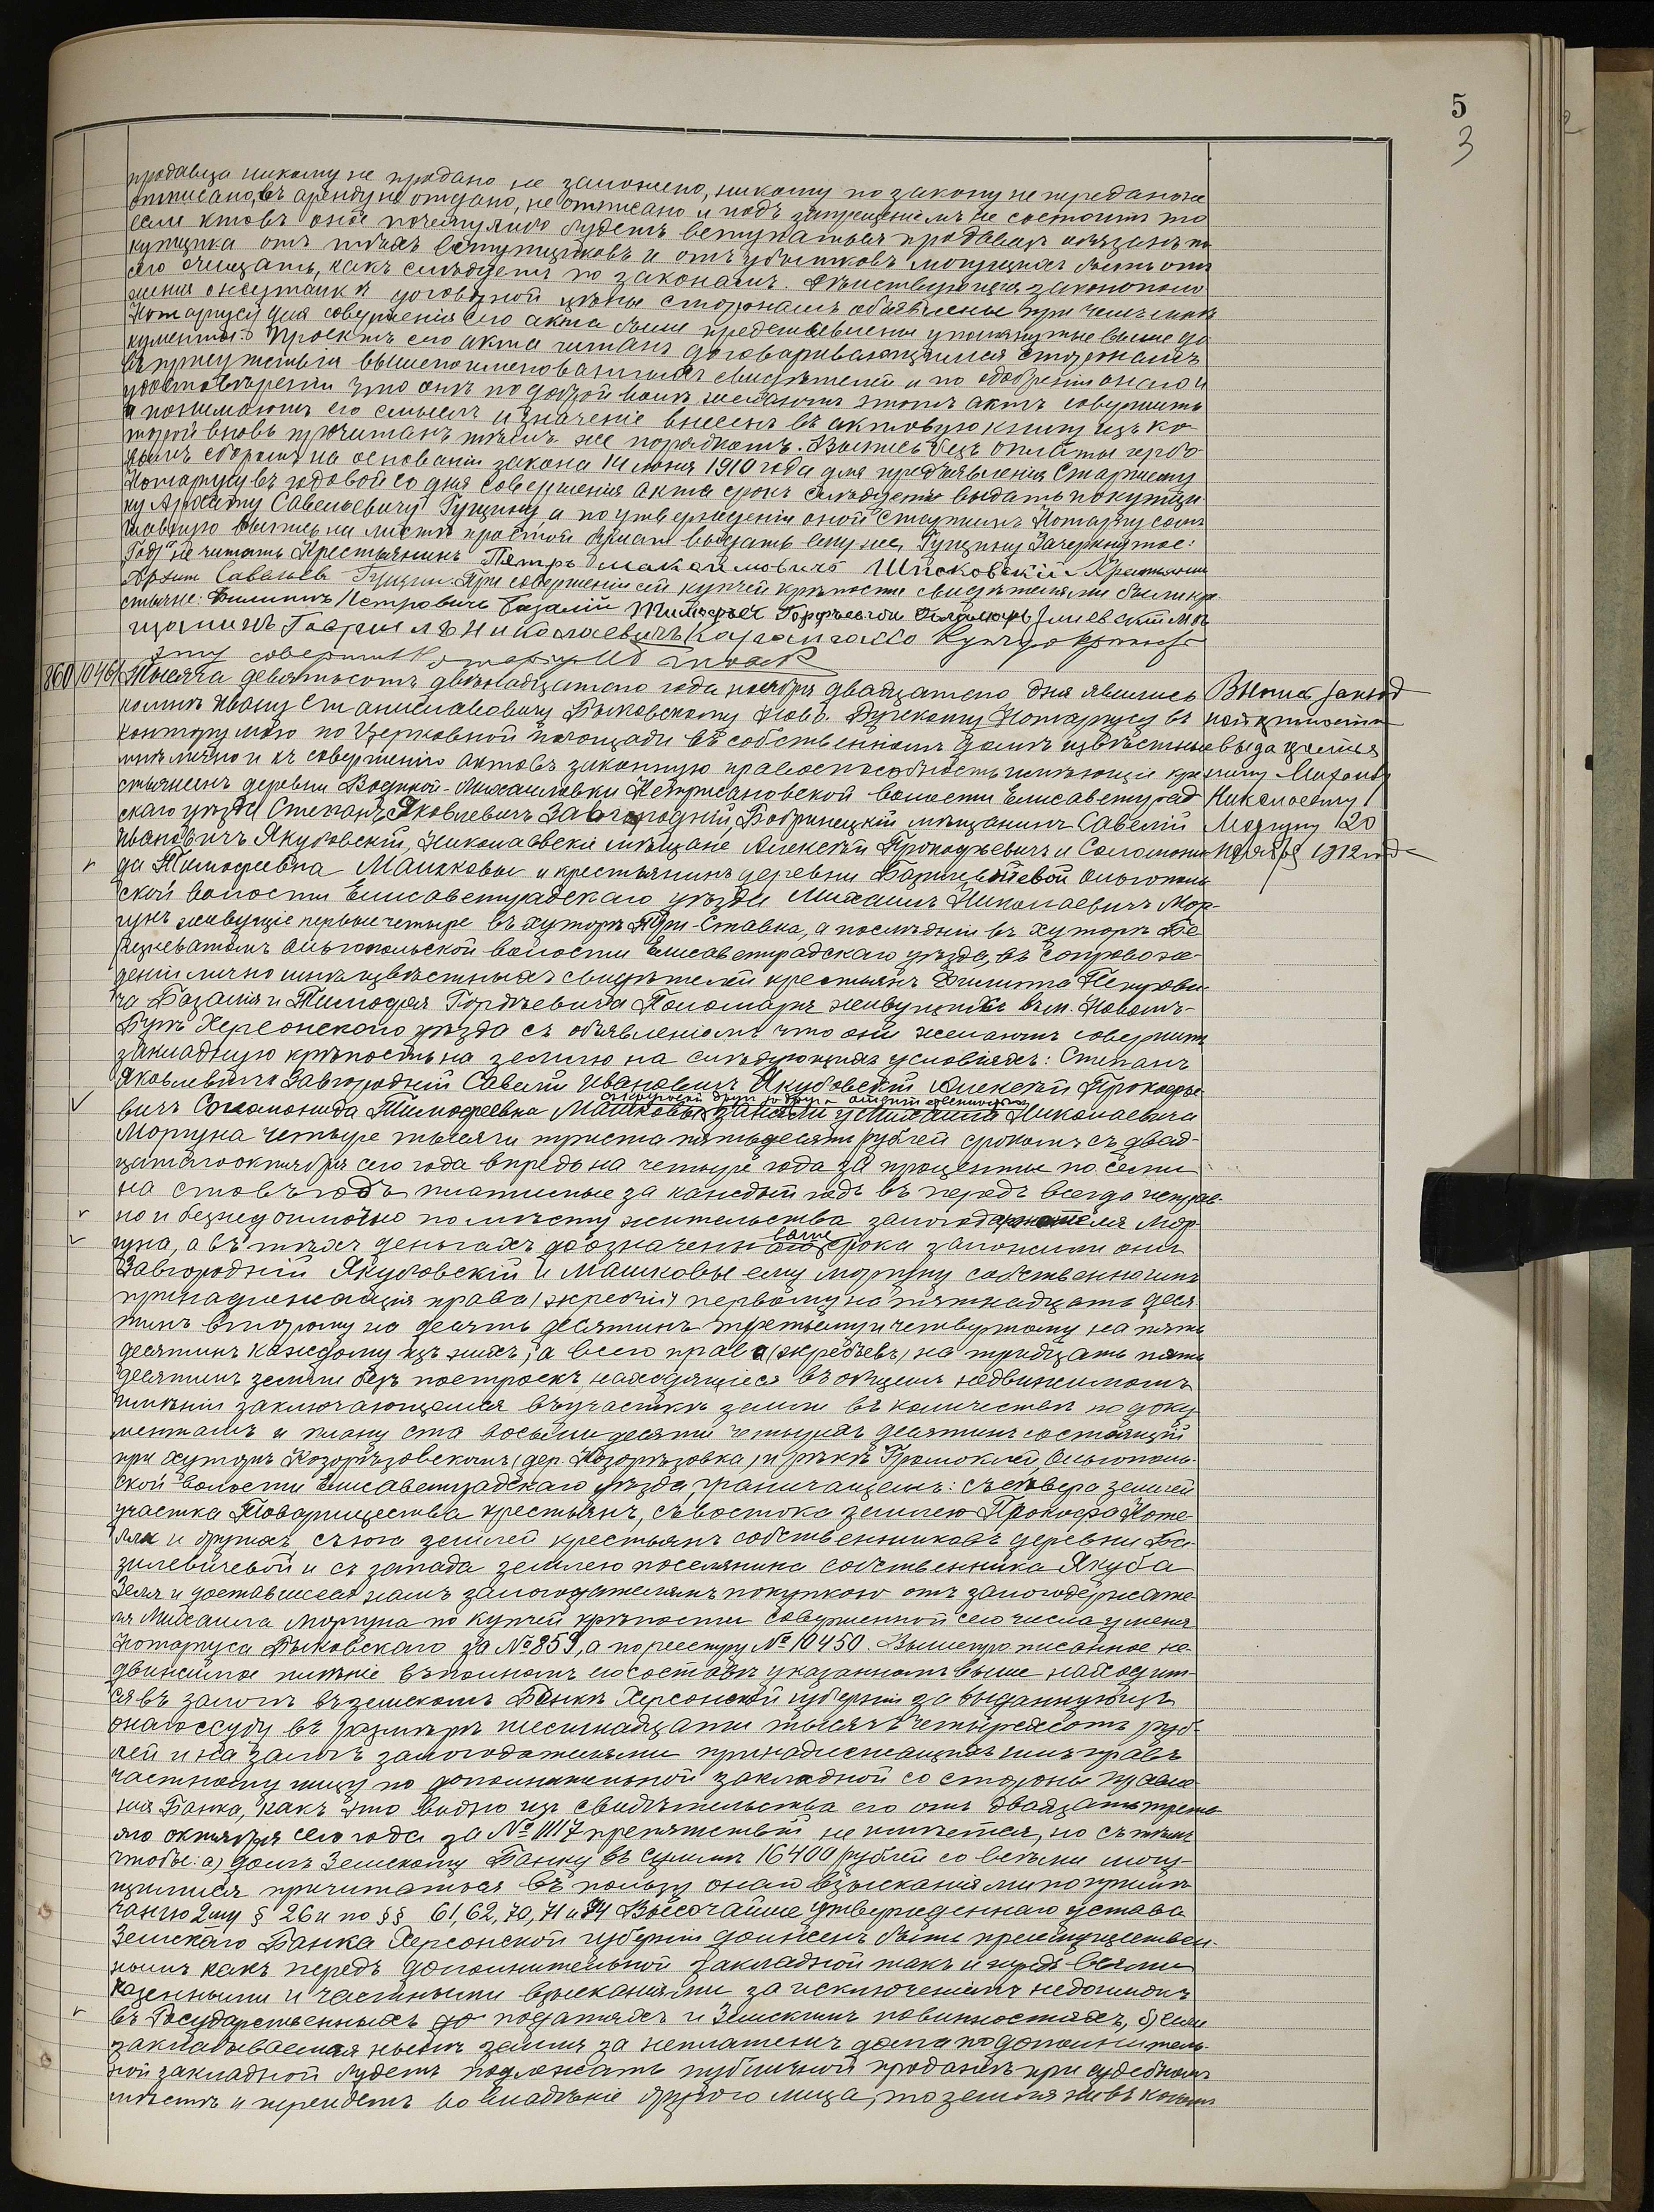 5
3
продавца никому не продано не заложено, никому по закону не передано не
отписано, въ аренду не отдано, не отписано и подъ запрещеніемъ не состоитъ то
если кто въ оное почему либо будетъ вступаться продавецъ обязанъ по
купщика отъ тѣхъ вступщиковъ и отъ убытковъ могущихъ быть отъ
сего очищать, какъ слѣдуетъ по законамъ. Дѣйствующія законополо
женія о неустойкѣ договорной цѣны сторонамъ объявлены при чемъ мнѣ
Нотаріусу для совершенія сего акта были предъявлены упомянутые выше до
кументы. Проектъ сего акта читанъ договаривающимися сторонамъ
въ присутствіи вышепоименованныхъ свидѣтелей и по одобреніи онаго и
удостовѣреніи что онъ по доброй волѣ желаютъ этотъ актъ совершить
и понимаютъ его смыслъ и значеніе внесенъ въ актовую книгу изъ ко
торой вновь прочитанъ тѣмъ же порядкомъ. Выпись безъ оплаты гербо
вымъ сборомъ на основаніи закона 14 іюня 1910 года для предъявленія Старшему
Нотаріусу въ годовой со дня совершенія акта срокъ слѣдуетъ выдать покупщи
ку Архипу Савельевичу Гущину, а по утвержденіи оной Старшимъ Нотаріусомъ
главную выпись на листѣ простой бумаги выдать ему же, Гущину Зачеркнутое:
"Год" не читать Крестьянинъ Петръ Максимовичъ Шпоковскій Крестьянинъ
Архип Савельев Гущин. При совершеніи сей купчей крѣпости свидѣтелями были кре
стьяне: Филиппъ Петровичъ Базалій Тимофѣй Гордѣевичъ Пономарь Змиевскій Мѣ
щанинъ Гавриилъ Николаевичъ Купчую крѣпость
эту совершилъ Нотаріусъ
860 10461 Тысяча девятьсотъ двѣнадцатаго года ноября двадцатаго дня явились
ко мнѣ Ивану Станиславовичу Быковскому Ново-Бугскому Нотаріусу въ
контору мою по Церковной площади въ собственномъ домѣ извѣстные
мнѣ лично и къ совершенію актовъ законную правоспособность имѣющіе кре
стьянинъ деревни Водяной-Михайловки Нетрисановской волости Елисаветград
скаго уѣзда Степанъ Яковлевичъ Завгородній, Бобринецкій мѣщанинъ Савелій
Ивановичъ Якубовскій, Николаевскіе мѣщане Алексѣй Прокофьевичъ и Соломони
да Тимофеевна Машковы и крестьянинъ деревни Базилевичевой Ольгополь
ской волости Елисаветградскаго уѣзда Михаилъ Николаевичъ Мор-
гунъ живущіе первые четыре въ хуторѣ Три-Ставка, а послѣдній въ хуторѣ Бе
Ольгопольской волости Елисаветградскаго уѣзда, въ сопровож-
деніи лично мнѣ извѣстныхъ свидѣтелей крестьянъ Филиппа Петрови
ча Базалія и Тимофея Гордѣевича Пономаря живущихъ въ м. Новомъ-
Бугѣ Херсонскаго уѣзда съ объявленіемъ что они желаютъ совершить
закладную крѣпость на землю на слѣдующихъ условіяхъ: Степанъ
Яковлевичъ Завгородній Савелій Ивановичъ Якубовскій Алексѣй Прокофье
вичъ Соломонида Тимофеевна Машковы заняли у Михаила Николаевича
Моргуна четыре тысячи триста пятьдесятъ рублей срокомъ съ двад-
цатаго октября сего года впредь на четыре года за проценты по семи
на сто въ годъ платимые за каждый годъ въ передъ всегда исправ-
но и безнедоимочно по мѣсту жительства залогодержателя Мор-
гуна, а въ тѣхъ деньгахъ до означеннаго срока заложили они
Завгородній Якубовскій и Машковы ему Моргуну собственно имъ
принадлежащія права (жребіи) первому на пятнадцать деся
тинъ второму на десять десятинъ третьему и четвертому на пять
десятинъ каждому изъ нихъ, а всего права (жребьевъ) на тридцать пять
десятинъ земли безъ построекъ, находящіяся въ общемъ недвижимомъ
имѣніи заключающемся въ участкѣ земли въ количествѣ по доку
ментамъ и плану ста восьмидесяти четырехъ десятинъ состоящій
при хуторѣ Козорѣзовскомъ (дер. Козорѣзовка) и рѣкѣ Громоклеѣ, Ольгополь-
ской волости Елисаветградскаго уѣзда, граничащемъ: съ сѣвера землей
участка Товарищества крестьянъ, съ востока землею Прокофа Коте
ляк и другихъ, съ юга землей крестьянъ собственниковъ деревни Ба-
зилевичевой и съ запада землею поселянина собственника Якуба
Зеля и доставшееся намъ залогодателямъ покупкою отъ залогодержате
ля Михаила Моргуна по купчей крѣпости совершенной сего числа у меня
Нотаріуса Быковскаго за № 859, а по реестру № 10450. Вышепрописанное не
движимое имѣніе въ полномъ его составѣ указанномъ выше находит-
ся въ залогѣ въ земскомъ Банкѣ Херсонской губерніи за выданную изъ
онаго ссуду въ размѣрѣ шестнадцати тысячъ четырехсотъ руб-
лей и на залогъ залогодателями принадлежащихъ имъ правъ
частному лицу по дополнительной закладной со стороны Правле
нія Банка, какъ это видно изъ свидѣтельства его отъ двадцать треть-
яго октября сего года за № 11117 препятствій не имѣется, но съ тѣмъ
чтобы: а) долгъ Земскому Банку въ суммѣ 16400 рублей со всѣми могу-
щимися причитаться въ пользу онаго взысканіями по примѣ-
чанію 2му § 26 и по §§ 61, 62, 70, 71 и 74 Высочайше утвержденнаго устава
Земскаго Банка Херсонской губерніи долженъ быть преимуществен-
нымъ какъ передъ дополнительной закладной такъ и предъ всѣми
казенными и частными взысканіями за исключеніемъ недоимокъ
въ Государственныхъ податяхъ и Земскимъ повинностяхъ, б) если
закладываемая нынѣ земля за неплатежъ долга по дополнитель-
ной закладной будетъ подлежать публичной продажѣ при судебномъ
мѣстѣ и перейдетъ во владѣніе другого лица, то земля
Выпись заклад
ной крѣпости
выдается
Михаилу
Николаевичу
Моргуну 120
ноября 1912 года